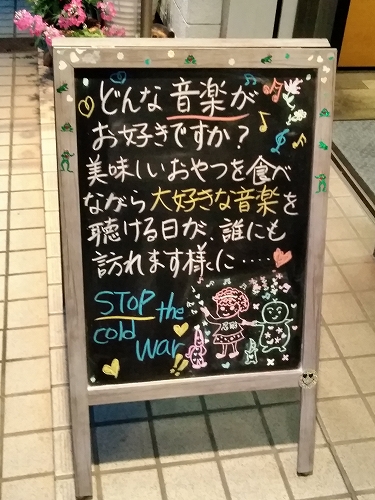 どんな音楽が
お好きですか?
美味しいおやつを食べ
ながら大好きな音楽を
聴ける日が、誰にも
訪れます様に....
STOP the
cold
war!!